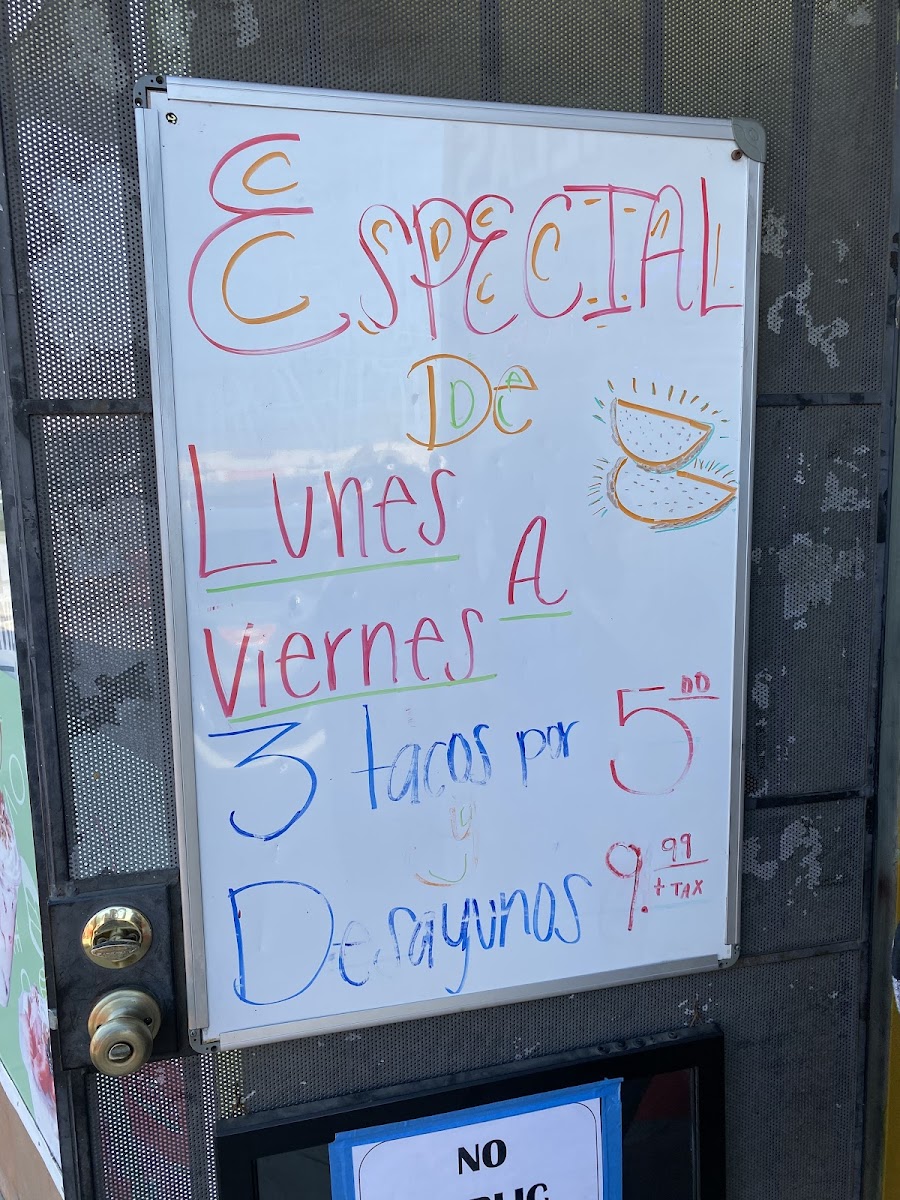 ESPECIAL
De
Lunes A
Viernes
3 tacos por 5 00
y
Desayunos 9. 99 + TAX
NO